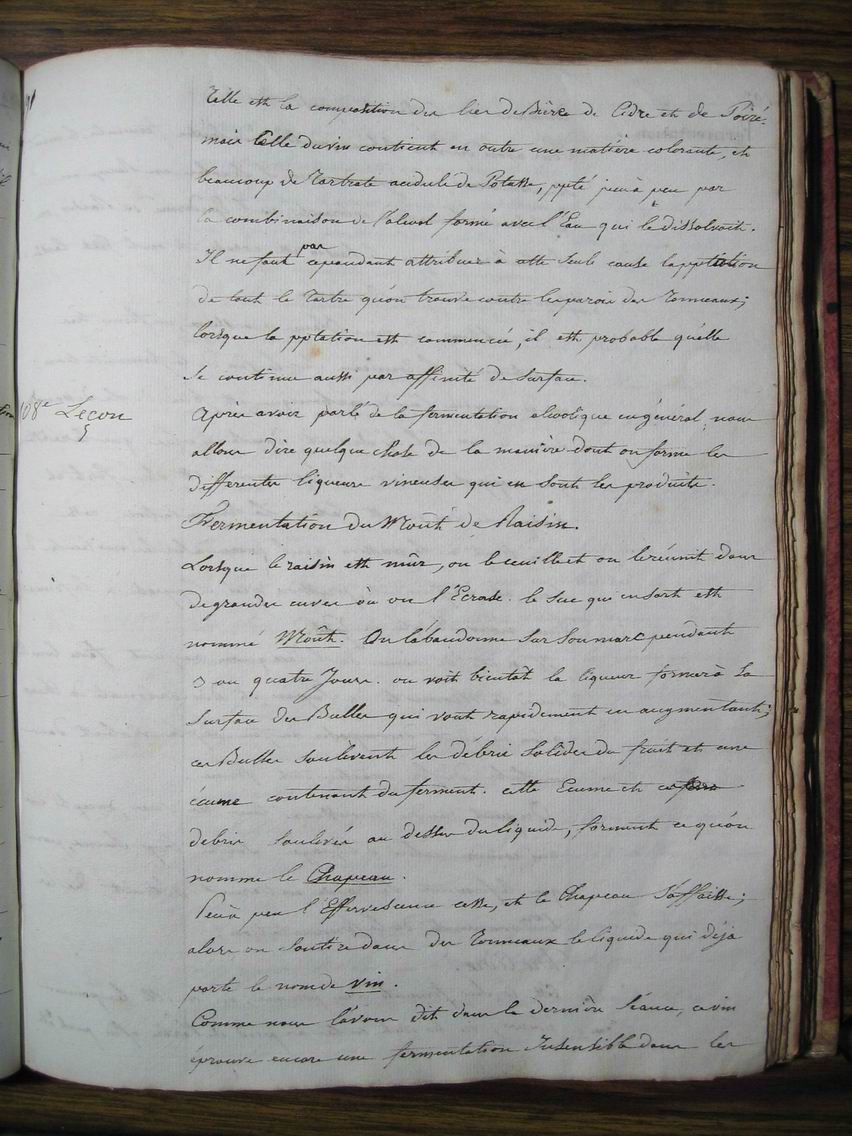 Telle est la composition des lies de Bière de Cidre et de Poiré.
mais Celle du vin contient en outre une matière colorante, et
beaucoup de Tartrate acidule de Potasse, ppté peu à peu par
la combinaison de l'alcool formé avec l'Eau qui le dissolvoit.
Il ne faut par cependant attribuer à cette seule cause la pptation
de tout le Tartre qu'on trouve contre les parois des Tonneaux;
lorsque la pptation est commencée, il est probable qu'elle
se continue aussi par affinité de surface.
108e Leçon
Après avoir parlé de la fermentation alcoolique en général, nous
allons dire quelque chose de la manière dont on forme les
differentes liqueurs vineuses qui en sont les produits.
Fermentation du Moût de Raisin.
Lorsque le raisin est mûr, on le cueille et on le réunit dans
de grandes cuves où on l'Ecrase. le suc qui en sort est
nommé Moût. On l'abandonne sur son marc pendant
3 ou quatre Jours. on voit bientôt la liqueur former à la
surface des Bulles qui vont rapidement en augmentant;
ces Bulles soulèvent les débris solides du fruit et une
écume contenant du ferment. cette Ecume et ces
debris soulevés au dessus du liquide, forment ce qu'on
nomme le Chapeau.
Peu à peu l'Effervescence cesse, et le Chapeau s'affaisse;
alors on soutire dans des Tonneaux le liquide qui déja
porte le nom de vin.
Comme nous l'avons dit dans la dernière séance, ce vin
éprouve encore une fermentation Insensible dans les